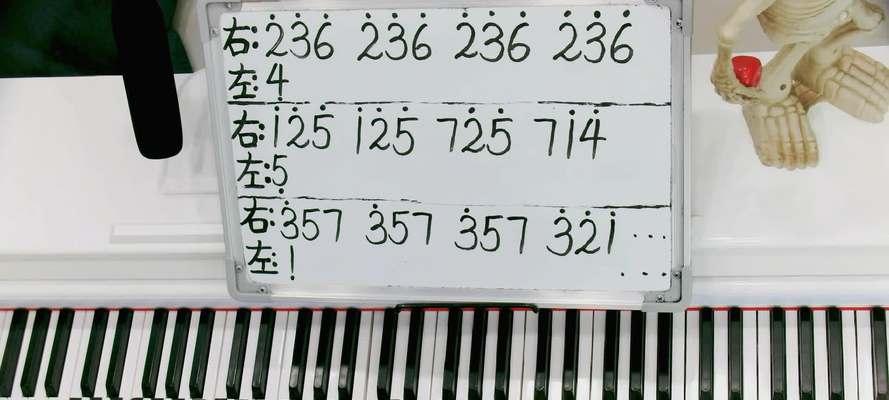 右:2̇3̇6̇ 2̇3̇6̇ 2̇3̇6̇ 2̇3̇6̇
左:4̣
右:1̇2̇5̇ 1̇2̇5̇ 72̇5̇ 71̇4̇
左:5̣
右:3̇57 3̇57 3̇57 3̇2̇1̇ ...
左:1̣ ...